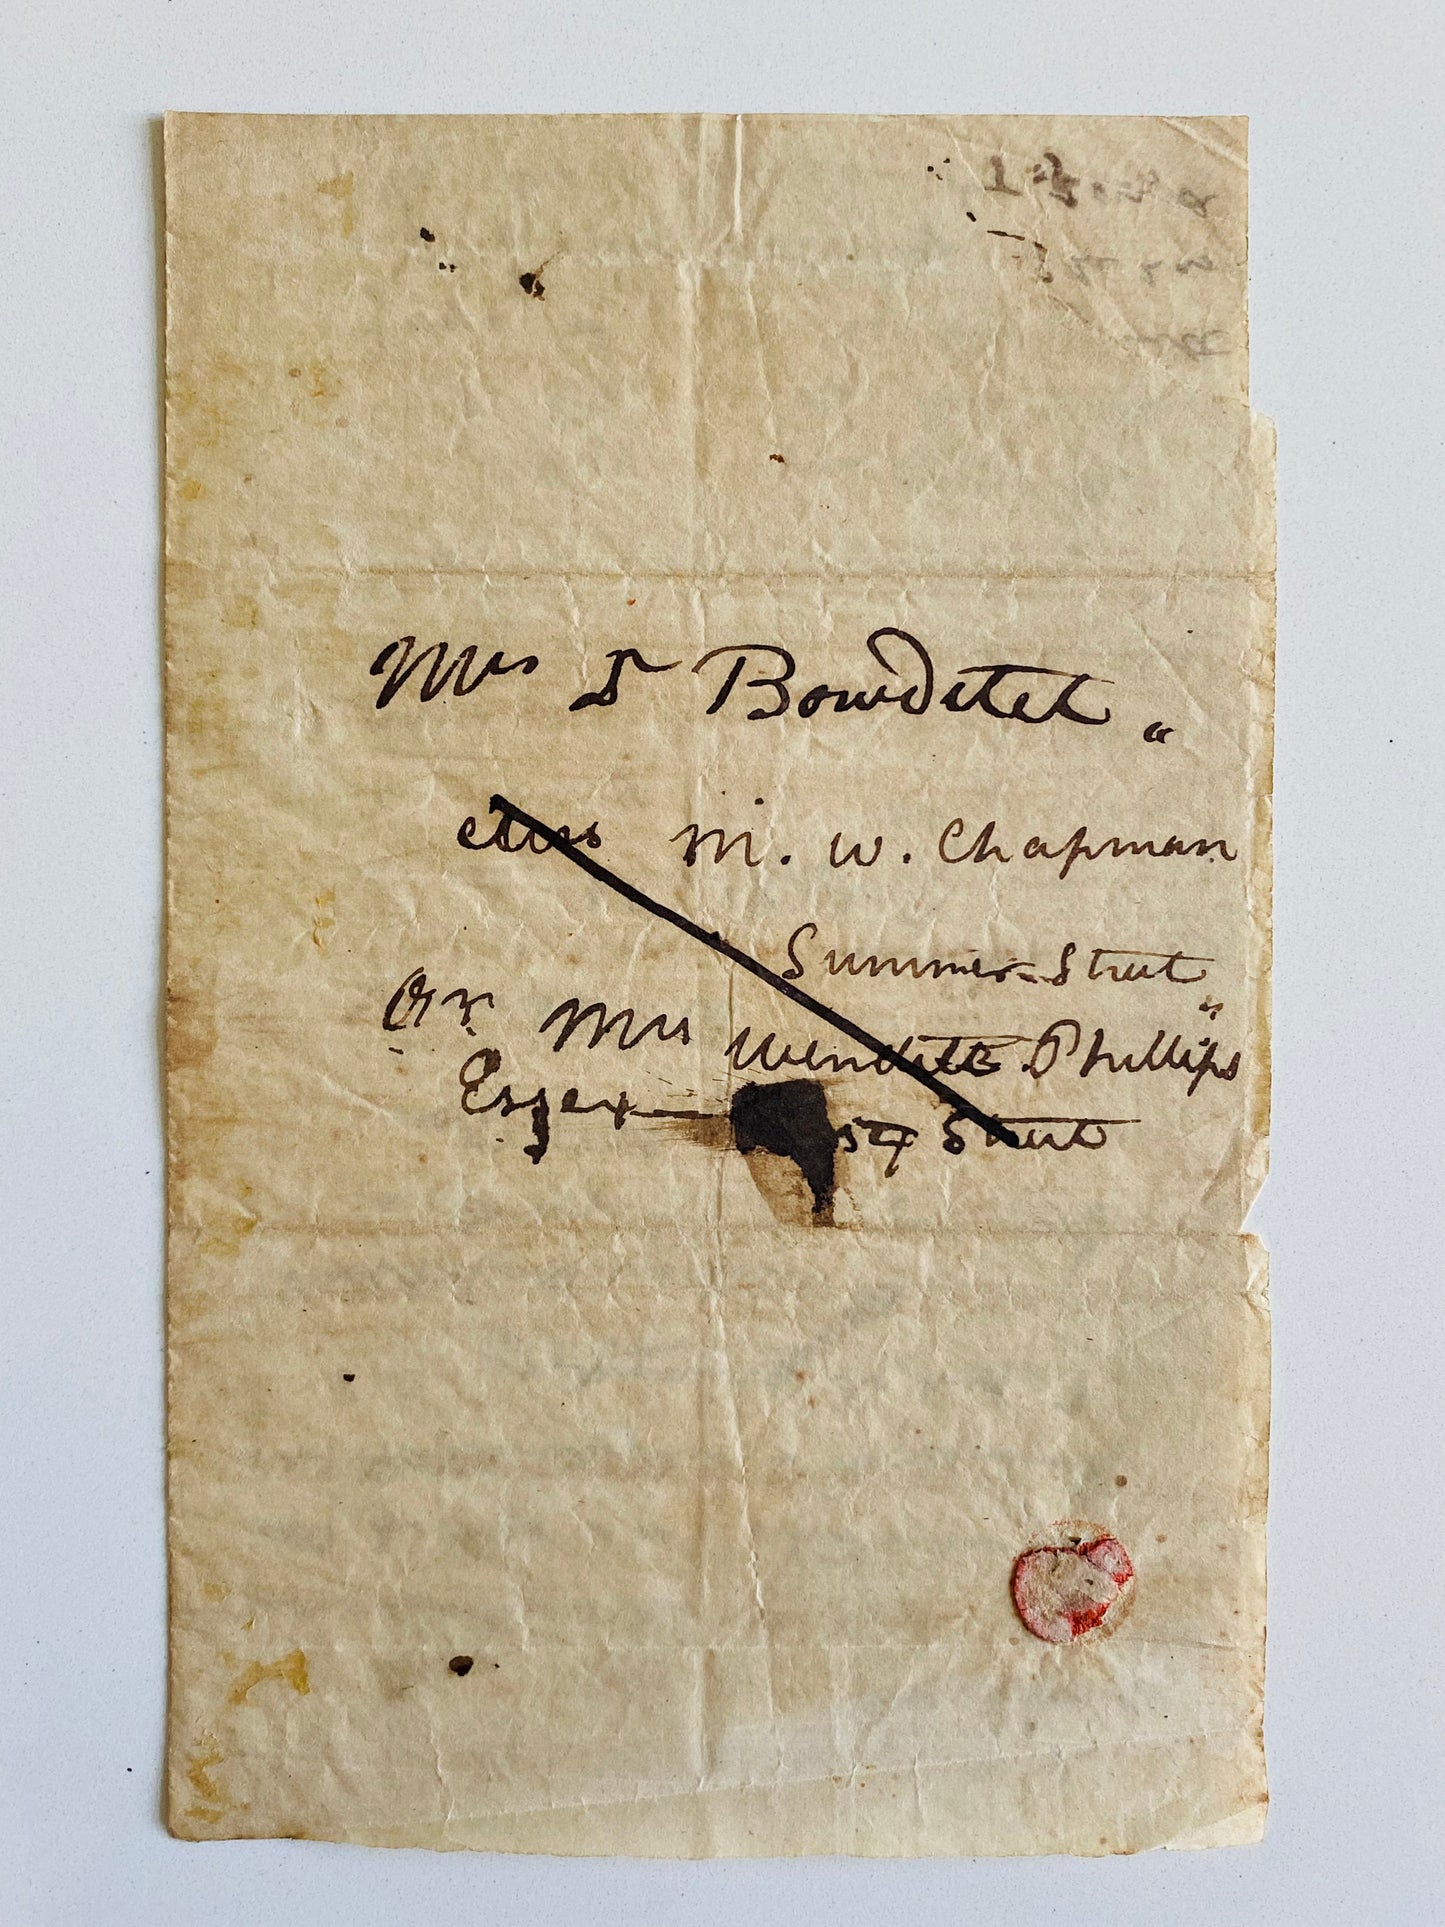 Mrs Dr Bowditch "
Mrs M. W. Chapman
Summer-Street "
Or Mrs Wendell Phillips
Essex— Street